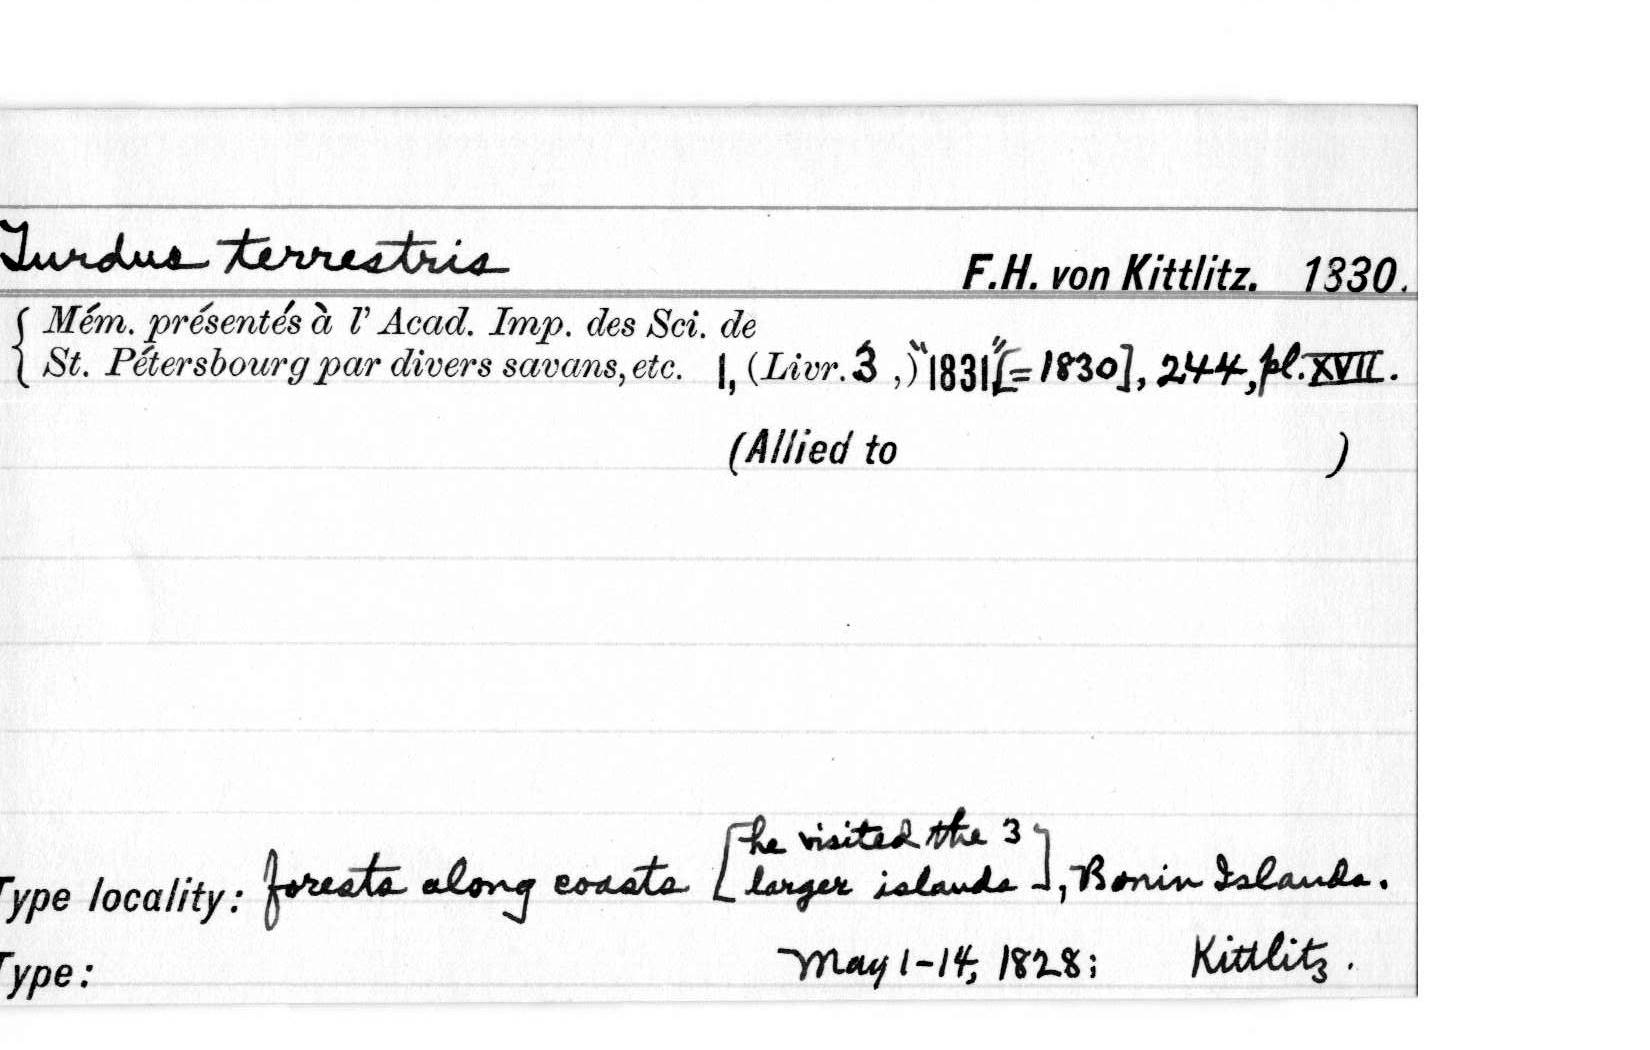 Turdus terrestris F.H. von Kittlitz. 1830.
Mém. présentés à l' Acad. Imp. des Sci. de
St. Pétersbourg par divers savans, etc. 1, (Livr. 3 ,) "1831" [=1830], 244, pl. XVII.
(Allied to )
[he visited the 3
Type locality: forests along coasts larger islands], Bonin Islands.
Type: May 1-14, 1828; Kittlitz.